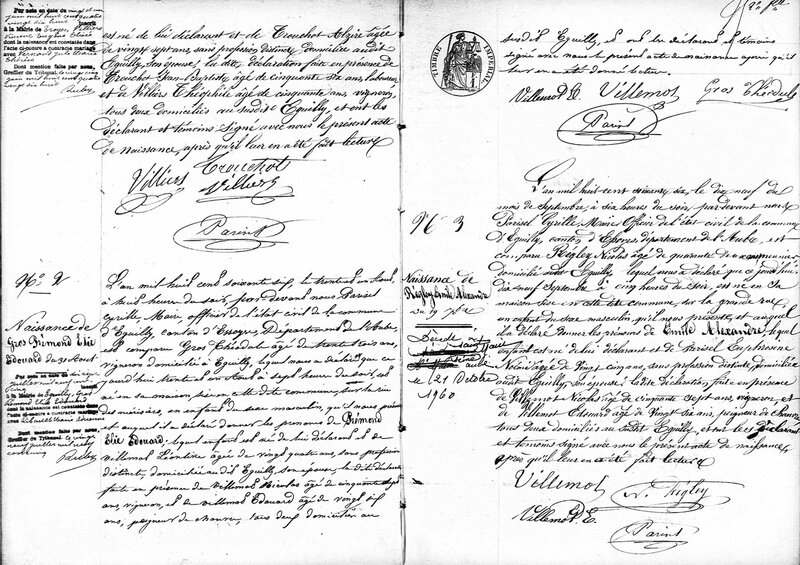 est né de lui déclarant et de Trouchot Alzire âgée
de vingt sept ans, sans profession distincte, domiciliée audit
Eguilly, son épouse; la dite déclaration faite en présence de
Trouchot Jean Baptiste, âgé de cinquante six ans, laboureur
et de Villiers Théophile âgé de cinquante ans, vigneron,
tous deux domiciliés au susdit Eguilly, et ont les
déclarant et témoins signé avec nous le présent acte
de naissance, après qu'il leur en a été fait lecture
Villiers Trouchot
Villiers
Parint
à la Mairie de Troyes
dont la naissance est constatée dans
l'acte ci-contre a contracté mariage
avec
Dont mention faite par nous,
Greffier du Tribunal
N° 2
Naissance de
Gros Prémond Elie
Edouard du 31 Août
Par note en date du
inscrit
à la Mairie de
dont la naissance est constatée dans
l'acte ci-contre a contracté mariage
avec
Dont mention faite par nous,
Greffier du Tribunal
L'an mil huit cent soixante six, le trente et un Août,
à huit heures du soir, par devant nous Parisel
Cyrille, Maire, officier de l'état civil de la commune
d'Eguilly, canton d'Essoyes, Département de l'Aube,
est comparu Gros Théodule âgé de trente trois ans,
vigneron domicilié à Eguilly, lequel nous a déclaré que ce
jourd'hui trente et un Août à sept heures du soir, est
né en sa maison, sise en cette dite commune, sur la rue
des mézières, un enfant de sexe masculin, qu'il nous présente
et auquel il a déclaré donner les prénoms de Prémond
Elie Edouard, lequel enfant est né de lui déclarant et de
Villemot Léontine âgée de vingt quatre ans, sans profession
distincte, domiciliée audit Eguilly, son épouse, la dite déclaration
faite en présence de Villemot Nicolas âgé de cinquante sept
ans, vigneron, et de Villemot Edouard âgé de vingt six
ans, peigneur de chanvre, tous deux domiciliés au
TIMBRE IMPERIAL
susdit Eguilly, et ont les déclarant et témoins
signé avec nous le présent acte de naissance après qu'il
leur en a été donné lecture.
Villemot E. Villemot Gros Théodule
Parint
N° 3
Naissance de
Régley Emile Alexandre
du 19 7bre
Décédé
le 21 Octobre
1960
L'an mil huit cent soixante six, le dix neuf du
mois de Septembre, à six heures du soir, par devant nous
Parisel Cyrille, Maire Officier de l'état civil de la commune
d'Eguilly, canton d'Essoyes, département de l'Aube, est
comparu Régley Nicolas âgé de quarante deux ans
domicilié audit Eguilly, lequel nous a déclaré que ce jourd'hui
dix neuf Septembre à cinq heures du soir, est né en sa
maison sise en cette dite commune, sur la grande rue
un enfant de sexe masculin qu'il nous présente, et auquel
il a déclaré donner les prénoms de Emile Alexandre, lequel
enfant est né de lui déclarant et de Parisel Euphrosine
âgée de vingt cinq ans, sans profession distincte, domiciliée
audit Eguilly, son épouse; la dite déclaration faite en présence
de Villemot Nicolas âgé de cinquante sept ans, vigneron, et
de Villemot Edouard âgé de vingt six ans, peigneur de chanvre,
tous deux domiciliés au susdit Eguilly, et ont les déclarant
et témoins signé avec nous le présent acte de naissance,
après qu'il leur en a été fait lecture
Villemot N. Régley
Villemot E.
Parint